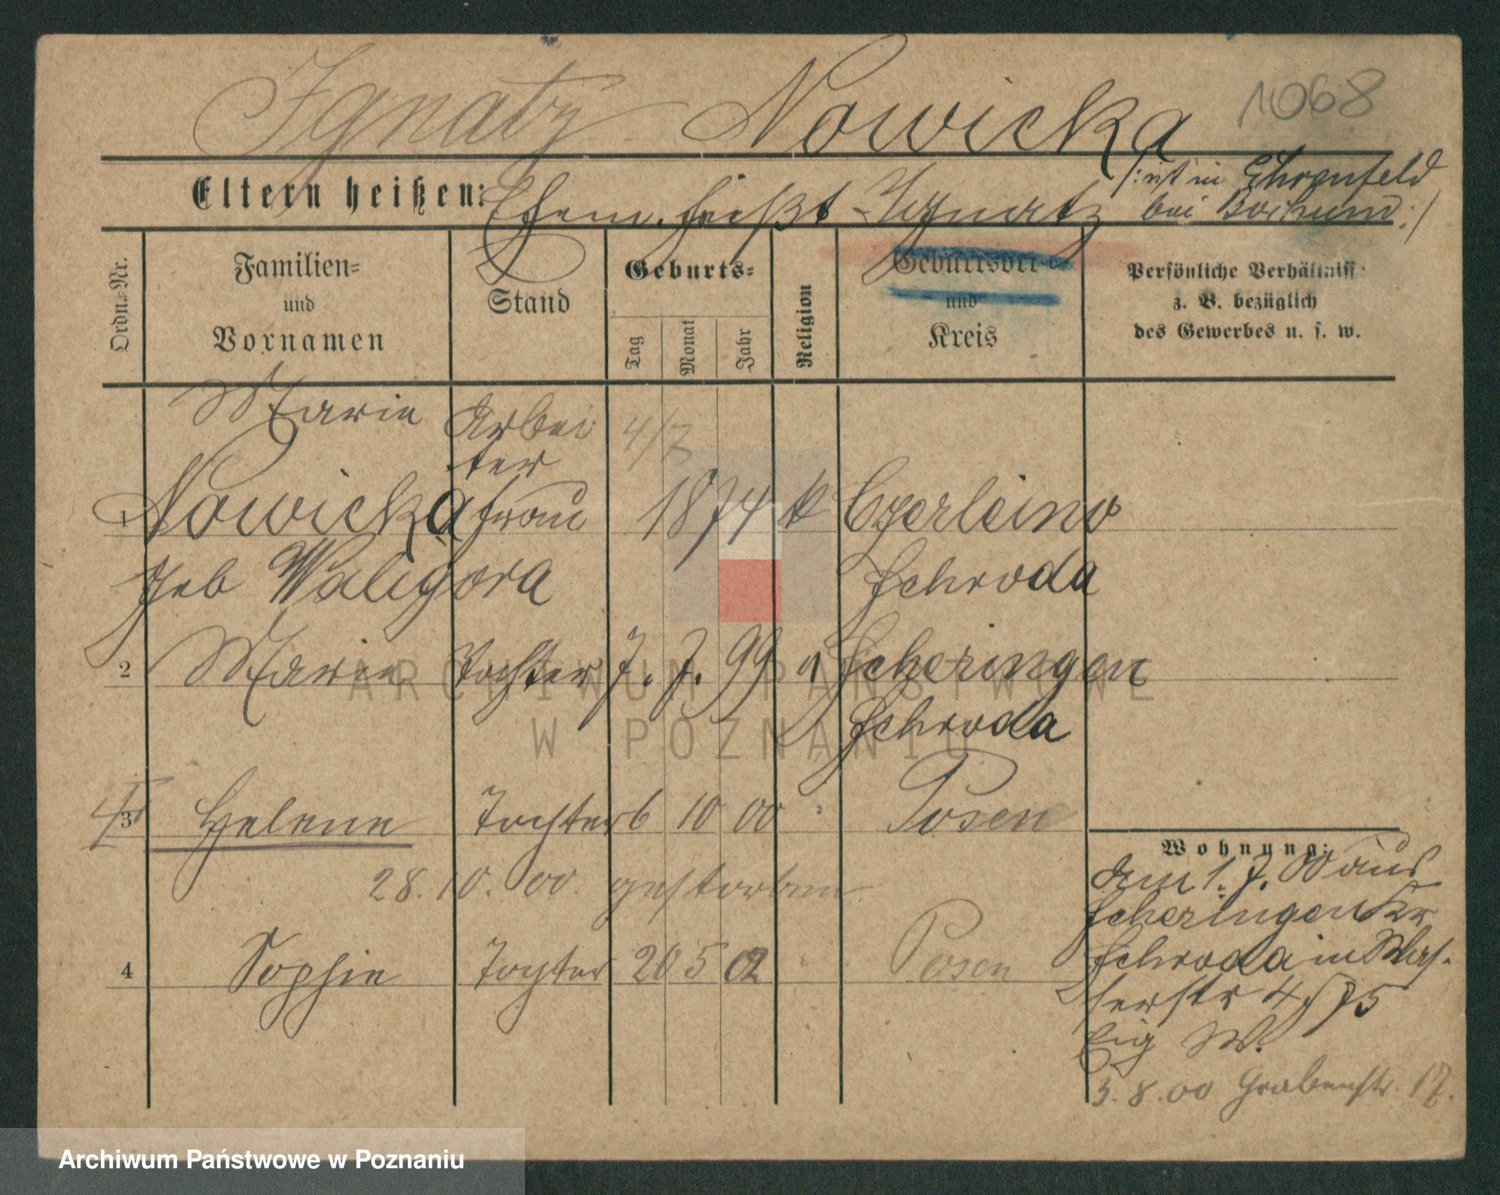 Ignatz Nowicka 1068
Eltern heißen: Ehem. heißt Ignatz /: ist in Ehrenfeld
bei Bochum :/
Ordn.=Nr.
Familien=
und
Vornamen
Stand
Geburts=
Tag
Monat
Jahr
Religion
Geburtsort
und
Kreis
Persönliche Verhältniss
z. B. bezüglich
des Gewerbes u. s. w.
Marie Arbei 4/7
ter
1 Nowicka frau 1874 k Czerleino
geb Waligora Schroda
2 Marie Tochter 7. 7. 99 Scheringen
Schroda
3 Helene Tochter 6 10 00 " Posen
28. 10. 00. gestorben
4 Sophie Tochter 20 5 02 " Posen
Wohnung:
Am 1. 7. 00 aus
Scheringen Kr
Schroda in Was-
serstr 4/5
Eig W.
3. 8. 00 Grabenstr. 17.
ARCHIWUM PAŃSTWOWE
W POZNANIU
Archiwum Państwowe w Poznaniu